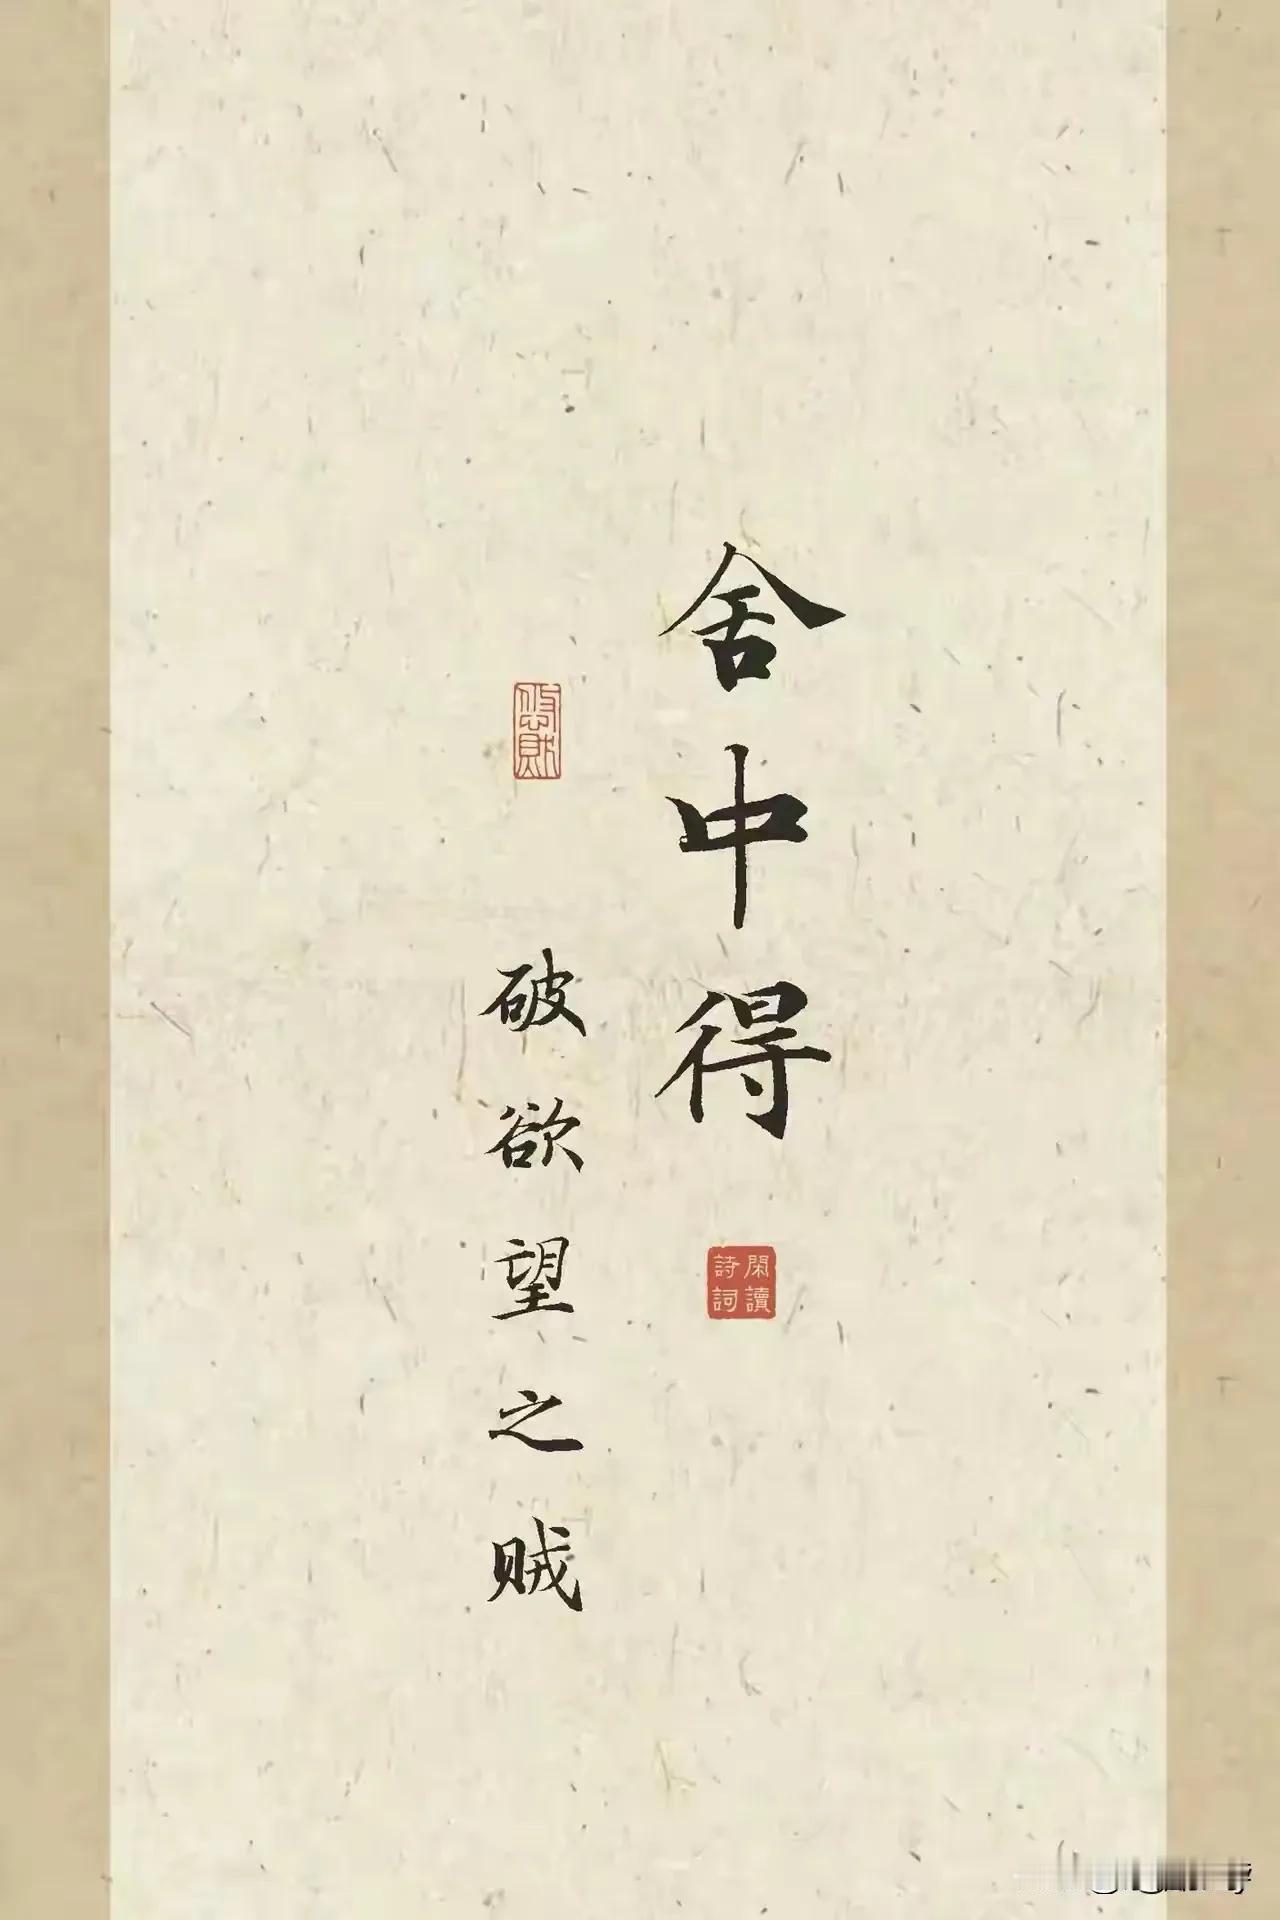 舍中得
閑讀詩詞
破欲望之贼